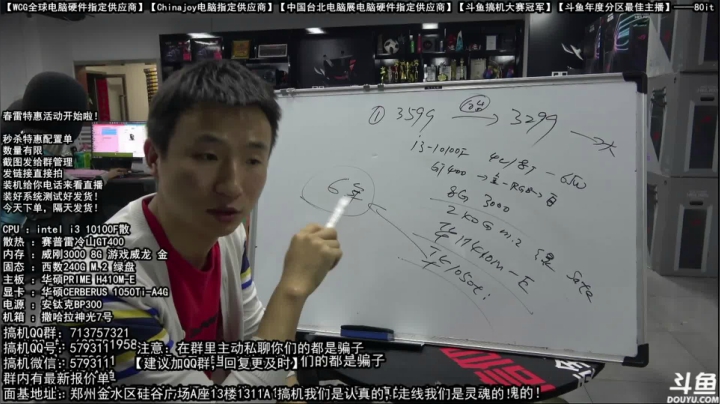 【WCG全球电脑硬件指定供应商】【Chinajoy电脑指定供应商】【中国台北电脑展电脑硬件指定供应商】【斗鱼搞机大赛冠军】【斗鱼年度分区最佳主播】——80it
春雷特惠活动开始啦!
秒杀特惠配置单
数量有限
截图发给群管理
发链接直接拍
装机给你电话来看直播
装好系统测试好发货!
今天下单，隔天发货!
CPU : intel i3 10100F散
散热 : 赛普雷冷山GT400
内存 : 威刚3000 8G 游戏威龙 金
固态 : 西数240G M.2 绿盘
主板 : 华硕PRIME H410M-E
显卡 : 华硕CERBERUS 1050Ti-A4G
电源 : 安钛克BP300
机箱 : 撒哈拉神光7号
搞机QQ群: 713757321
搞机QQ号: 5793111958
搞机微信: 5793111
群内有最新报价单
注意: 在群里主动私聊你们的都是骗子
【建议加QQ群，回复更及时】
们的都是骗子
面基地址: 郑州金水区硅谷广场A座13楼1311A1
搞机我们是认真的，走线我们是灵魂的!
① 3599 → 3299
i3-10100F 4C/8T - 65W
GT400
RGB
8G 3000
M.2
Sata
1050ti
斗鱼
DOUYU.COM